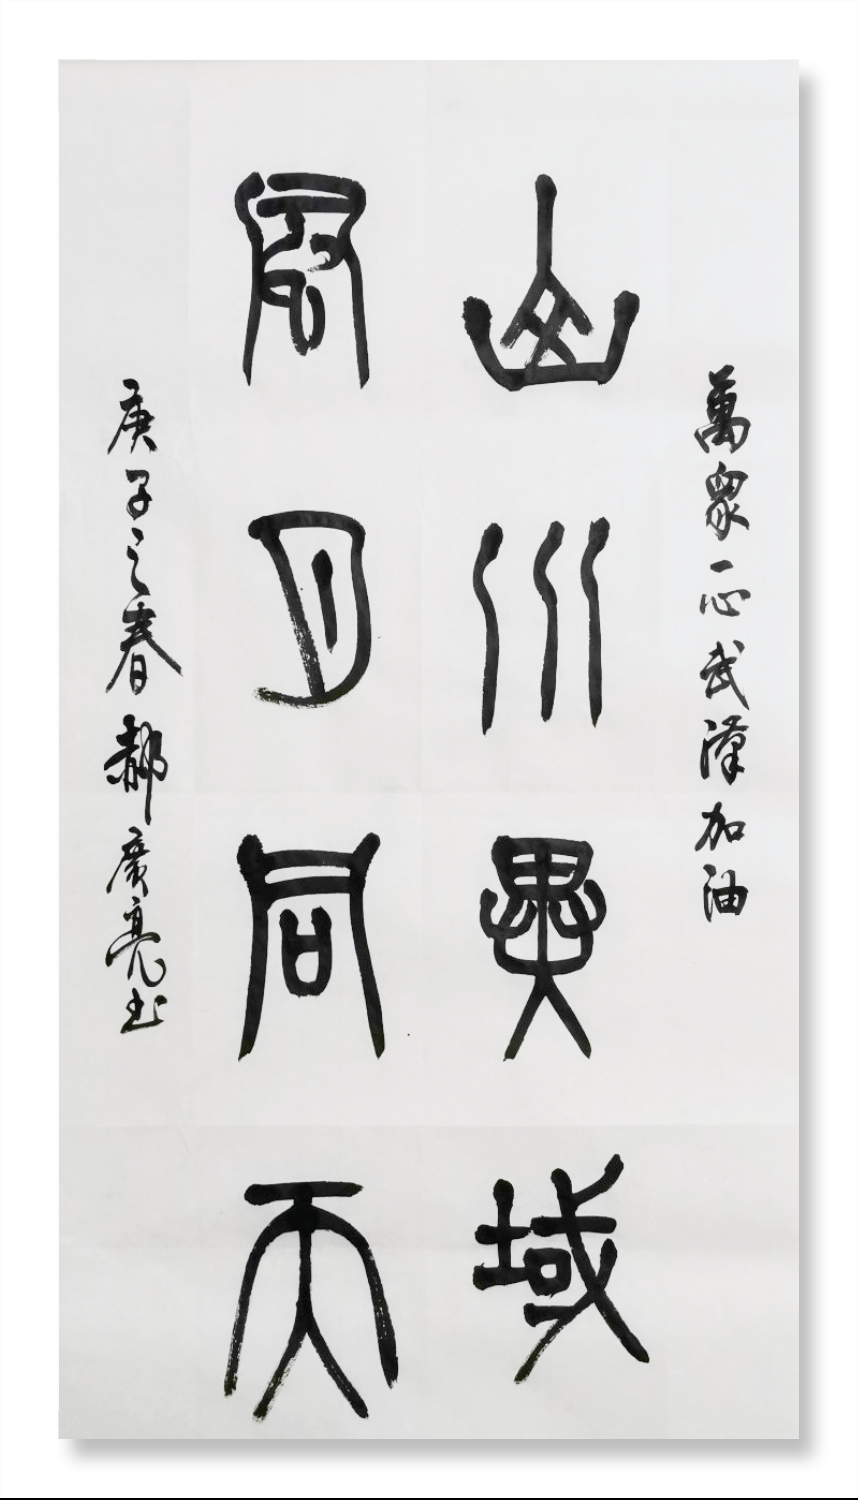 萬眾一心武漢加油
山川異域
風月同天
庚子之春郝廣亮書